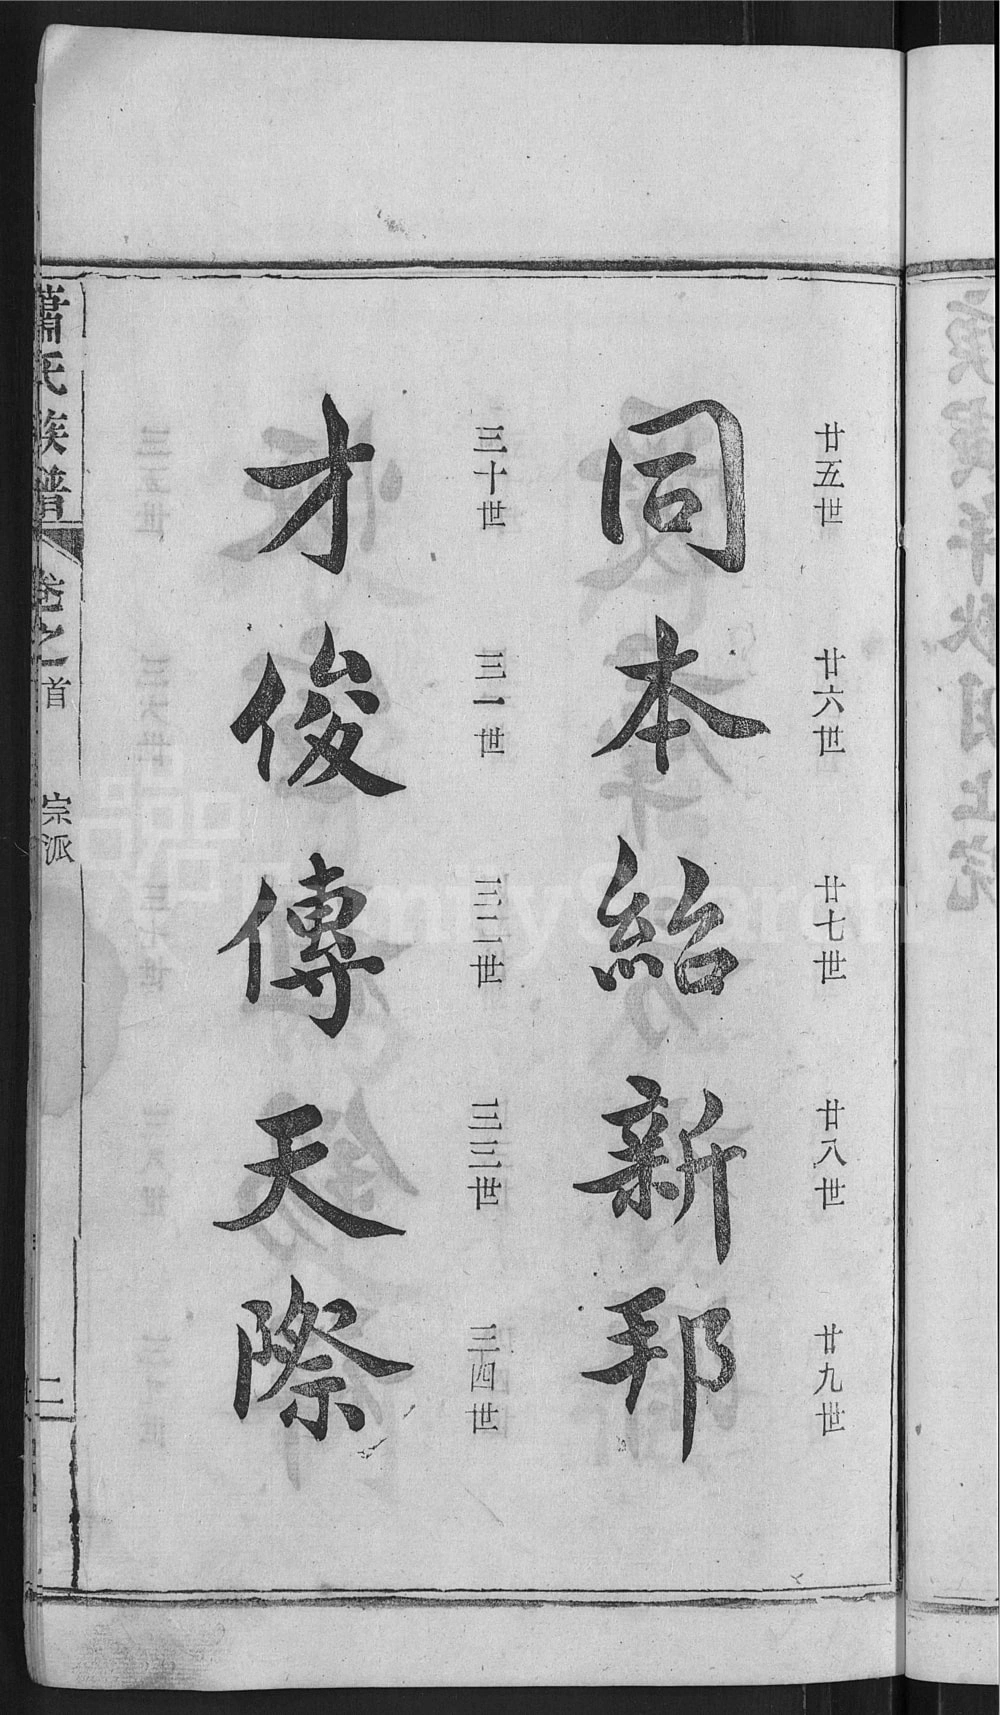 廿五世 廿六世 廿七世 廿八世 廿九世
同本紹新邦
三十世 三一世 三二世 三三世 三四世
才俊傳天際
蕭氏族譜 卷之首 宗派 二